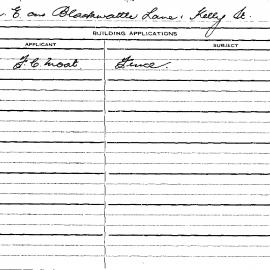 E and Blackwattle Lane, Kelly St.
BUILDING APPLICATIONS
APPLICANT SUBJECT
F C Moat Fence.